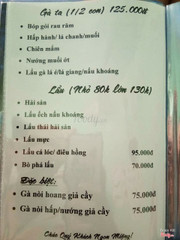 Gà ta (1/2 con) 125.000đ
• Bóp gỏi rau răm
• Hấp hành/ lá chanh/muối
• Chiên mắm
• Nướng muối ớt
• Lẩu gà lá é/lá giang/nấu khoáng
Lẩu (Nhỏ 80k lớn 130k)
• Hải sản
• Lẩu ếch nấu khoáng
• Lẩu thái hải sản
• Lẩu mực
• Lẩu cá lóc/ điên hồng 95.000đ
• Bò phá lấu 70.000đ
Đặc biệt:
• Gà nòi hoang giả cầy 75.000đ
• Gà nòi hấp/nướng giả cầy 75.000đ
Chúc Quý Khách Ngon Miệng!